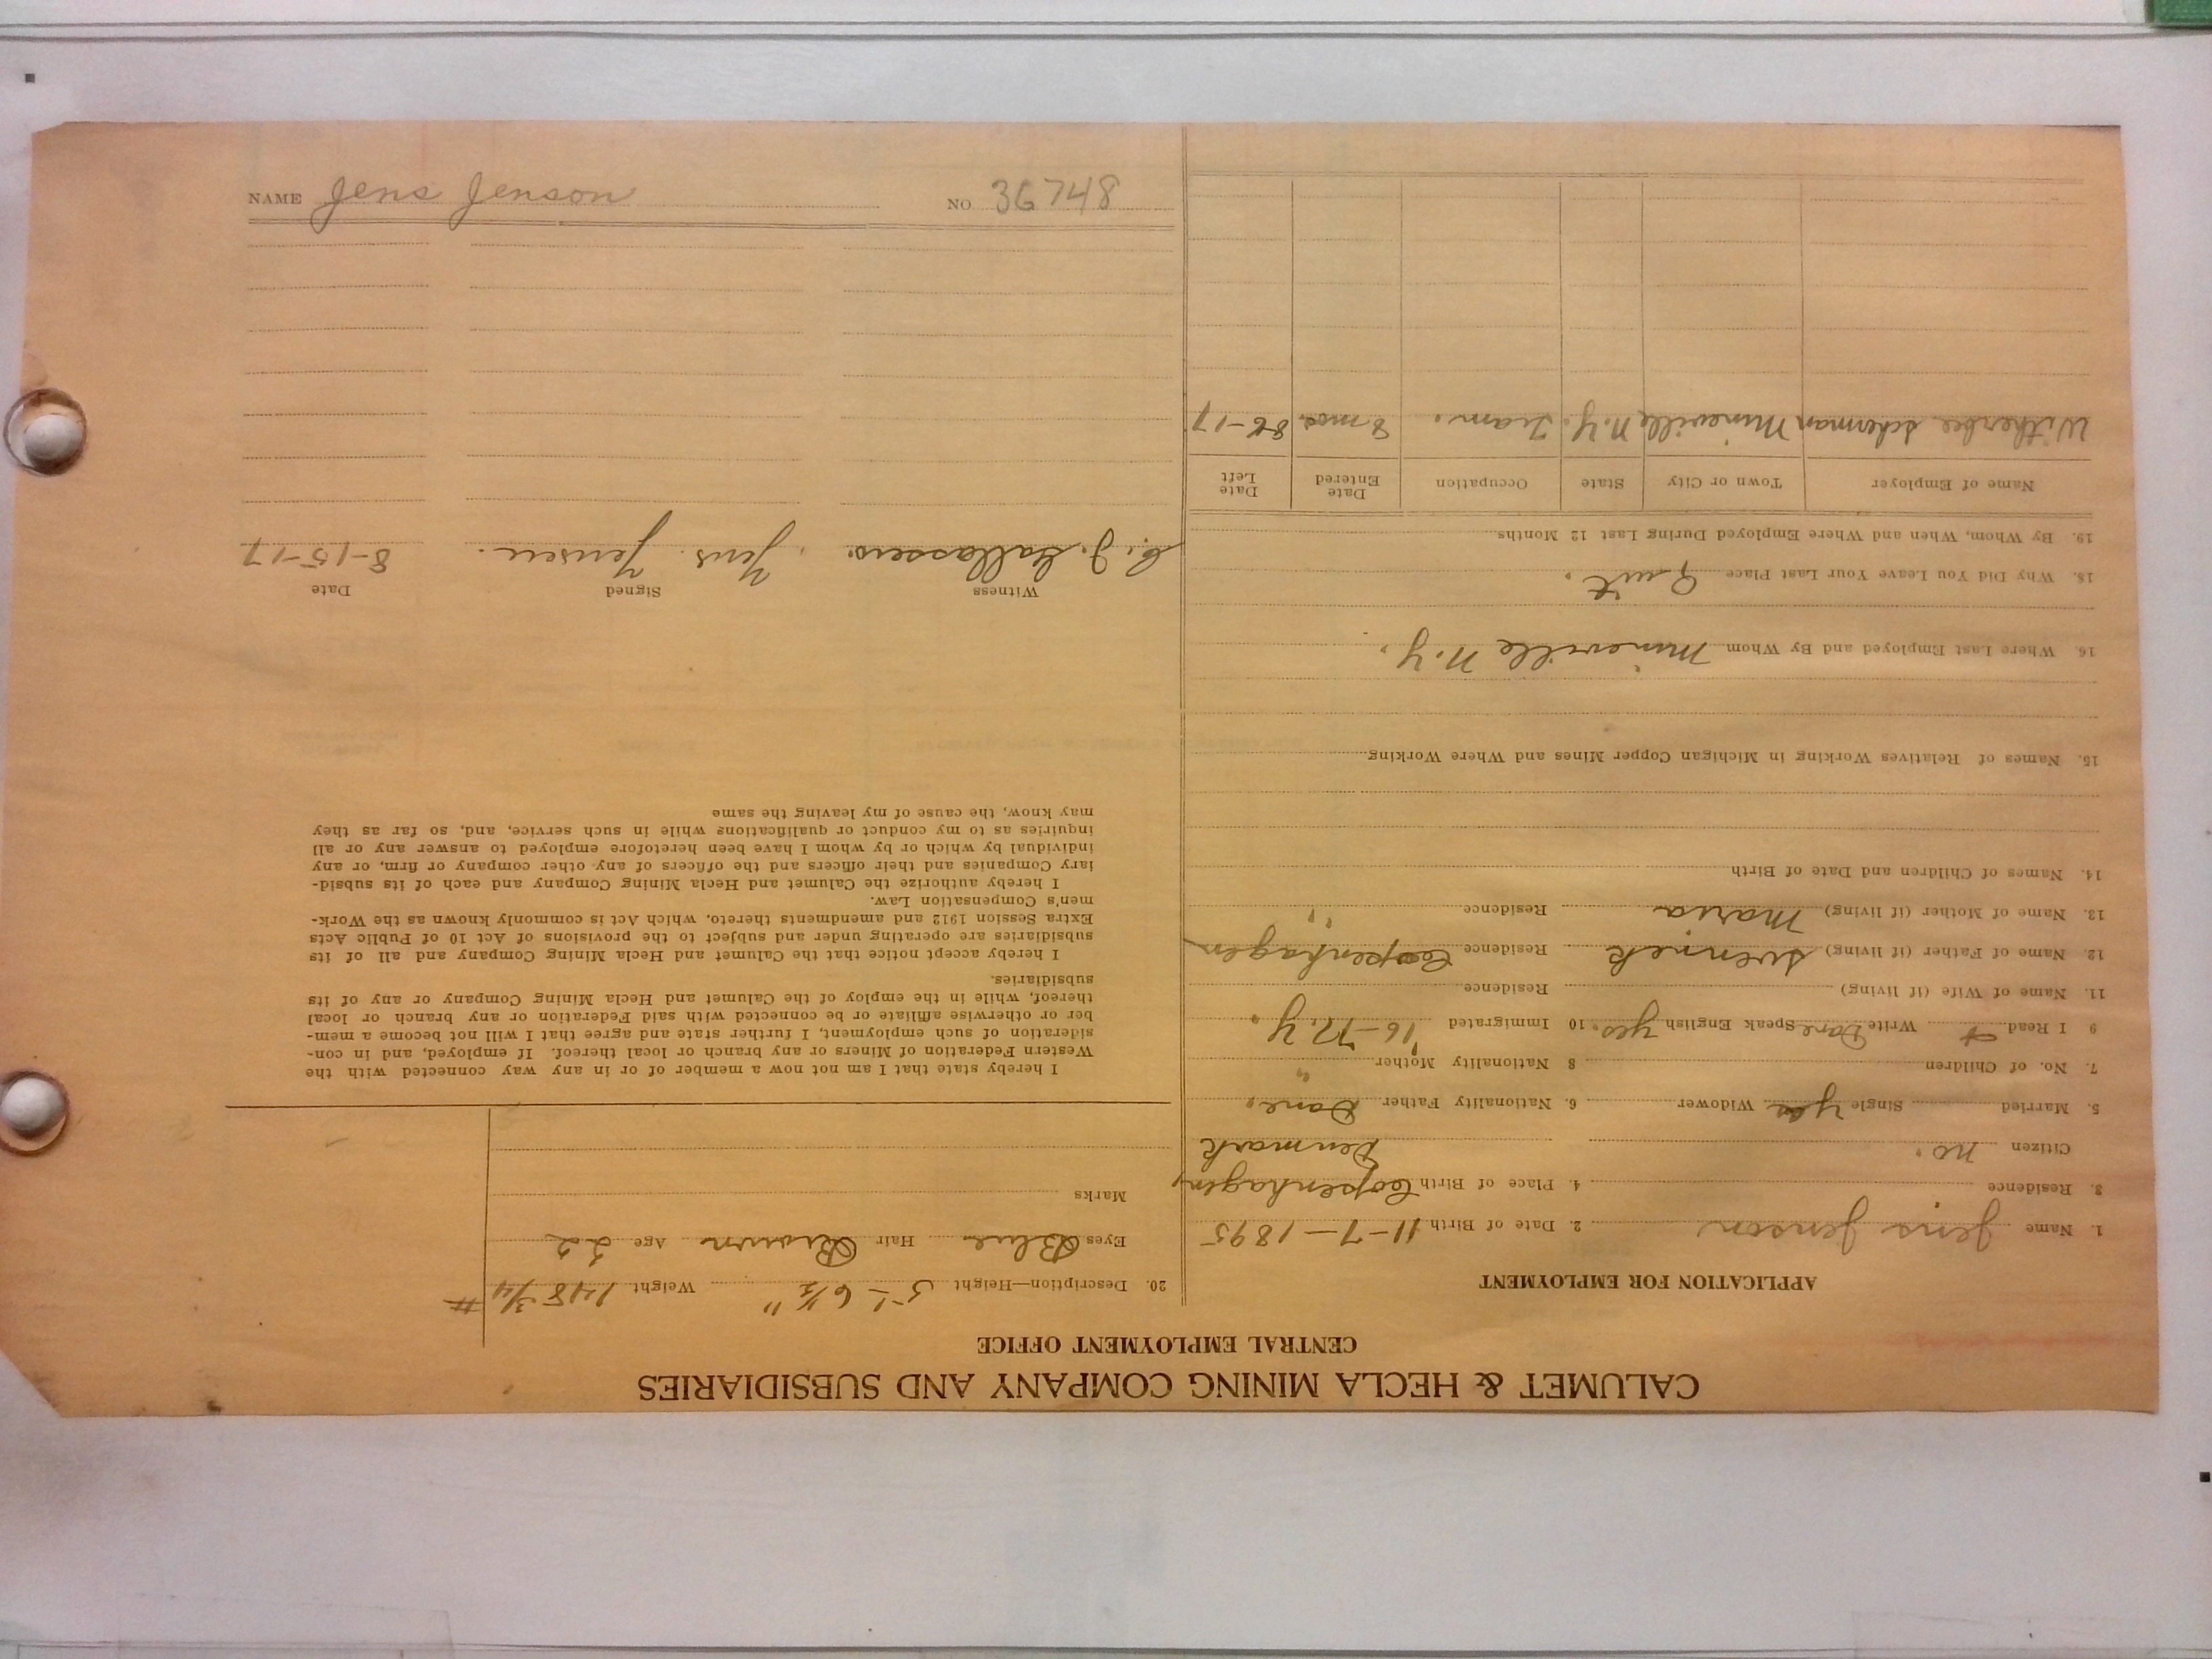 NAME Jens Jenson NO 36748
CALUMET & HECLA MINING COMPANY AND SUBSIDIARIES
CENTRAL EMPLOYMENT OFFICE
APPLICATION FOR EMPLOYMENT
1. Name Jens Jenson 2. Date of Birth 11-7-1895
3. Residence 4. Place of Birth Copenhagen,
Citizen no. Denmark
5. Married Single yes Widower 6. Nationality Father Dane.
7. No. of Children 8 Nationality Mother "
9 I Read + Write Dane Speak English yes. 10 Immigrated '16- N.Y.
11. Name of Wife (if living) Residence
12. Name of Father (if living) Residence Copenhagen
13. Name of Mother (if living) Maria Residence "
14. Names of Children and Date of Birth
15. Names of Relatives Working in Michigan Copper Mines and Where Working
16. Where Last Employed and By Whom Mineville N.Y.
18. Why Did You Leave Your Last Place Quit.
19. By Whom, When and Where Employed During Last 12 Months
Name of Employer Town or City State Occupation Date Entered Date Left
Witherbee Scherman Mineville N.Y. Tram. 8 mos. 8-6-17
20. Description—Height 5'-6 1/2" Weight 148 3/4 #
Eyes Blue Hair Brown Age 22
Marks
I hereby state that I am not now a member of or in any way connected with the
Western Federation of Miners or any branch or local thereof. If employed, and in con-
sideration of such employment, I further state and agree that I will not become a mem-
ber or otherwise affiliate or be connected with said Federation or any branch or local
thereof, while in the employ of the Calumet and Hecla Mining Company or any of its
subsidiaries.
I hereby accept notice that the Calumet and Hecla Mining Company and all of its
subsidiaries are operating under and subject to the provisions of Act 10 of Public Acts
Extra Session 1912 and amendments thereto, which Act is commonly known as the Work-
men's Compensation Law.
I hereby authorize the Calumet and Hecla Mining Company and each of its subsid-
iary Companies and their officers and the officers of any other company or firm, or any
individual by which or by whom I have been heretofore employed to answer any or all
inquiries as to my conduct or qualifications while in such service, and, so far as they
may know, the cause of my leaving the same
Witness Signed Date
C. J. Jens Jensen. 8-15-17